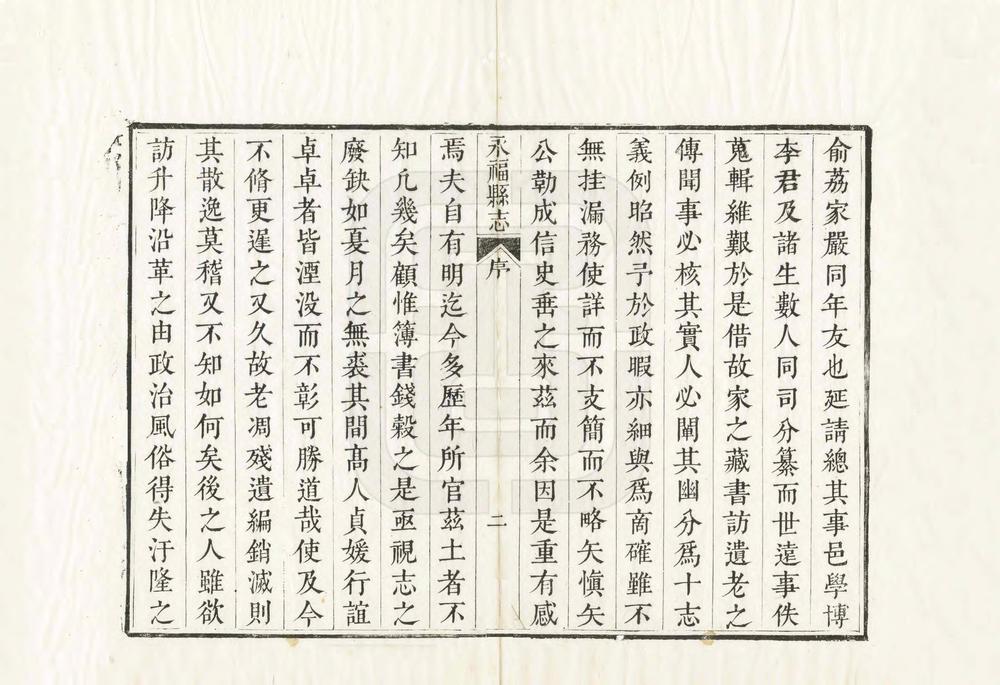 俞荔家嚴同年友也延請總其事邑學博
李君及諸生數人同司分纂而世遠事佚
蒐輯維艱於是借故家之藏書訪遺老之
傳聞事必核其實人必闡其幽分爲十志
義例昭然予於政暇亦細與爲商確雖不
無挂漏務使詳而不支簡而不略矢愼矢
公勒成信史垂之來茲而余因是重有感
永福縣志 序 二
焉夫自有明迄今多歷年所官茲土者不
知凢幾矣顧惟簿書錢穀之是亟視志之
廢缺如夏月之無裘其間髙人貞媛行誼
卓卓者皆湮没而不彰可勝道哉使及今
不脩更遲之又久故老凋殘遺編銷滅則
其散逸莫稽又不知如何矣後之人雖欲
訪升降沿革之由政治風俗得失汙隆之